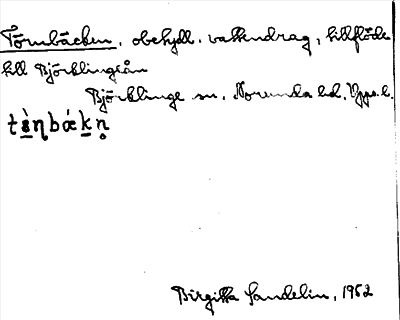 Törnbäcken, obetydl. vattendrag, tillflöde
till Björklingeån
Björklinge sn. Norunda hd. Upps. l.
tɛ̀ŋbǽkn̥
Birgitta Sandelin, 1952